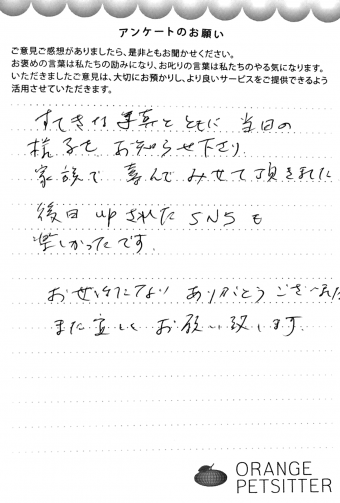 アンケートのお願い
ご意見ご感想がありましたら、是非ともお聞かせください。
お褒めの言葉は私たちの励みになり、お叱りの言葉は私たちのやる気になります。
いただきましたご意見は、大切にお預かりし、より良いサービスをご提供できるよう
活用させていただきます。
すてきな写真とともに 当日の
様子を お知らせ下さり
家族で 喜んで みせて頂きました
後日 upされた SNSも
楽しかったです.
お世話になり ありがとう ございました
また宜しく お願い致します.
ORANGE
PETSITTER